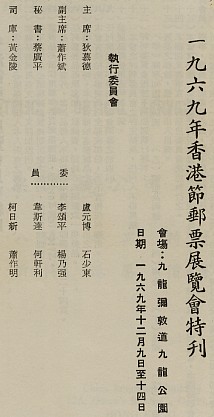 一九六九年香港節郵票展覽會特刊
會場：九龍彌敦道九龍公園
日期 一九六九年十二月九日至十四日
執行委員會
主席：狄慕德
副主席：蕭作斌
秘書：蔡廣平
司庫：黃金陵
委員
盧元博 石少東
李頌平 楊乃强
韋斯達 何軒利
柯日新 蕭作明